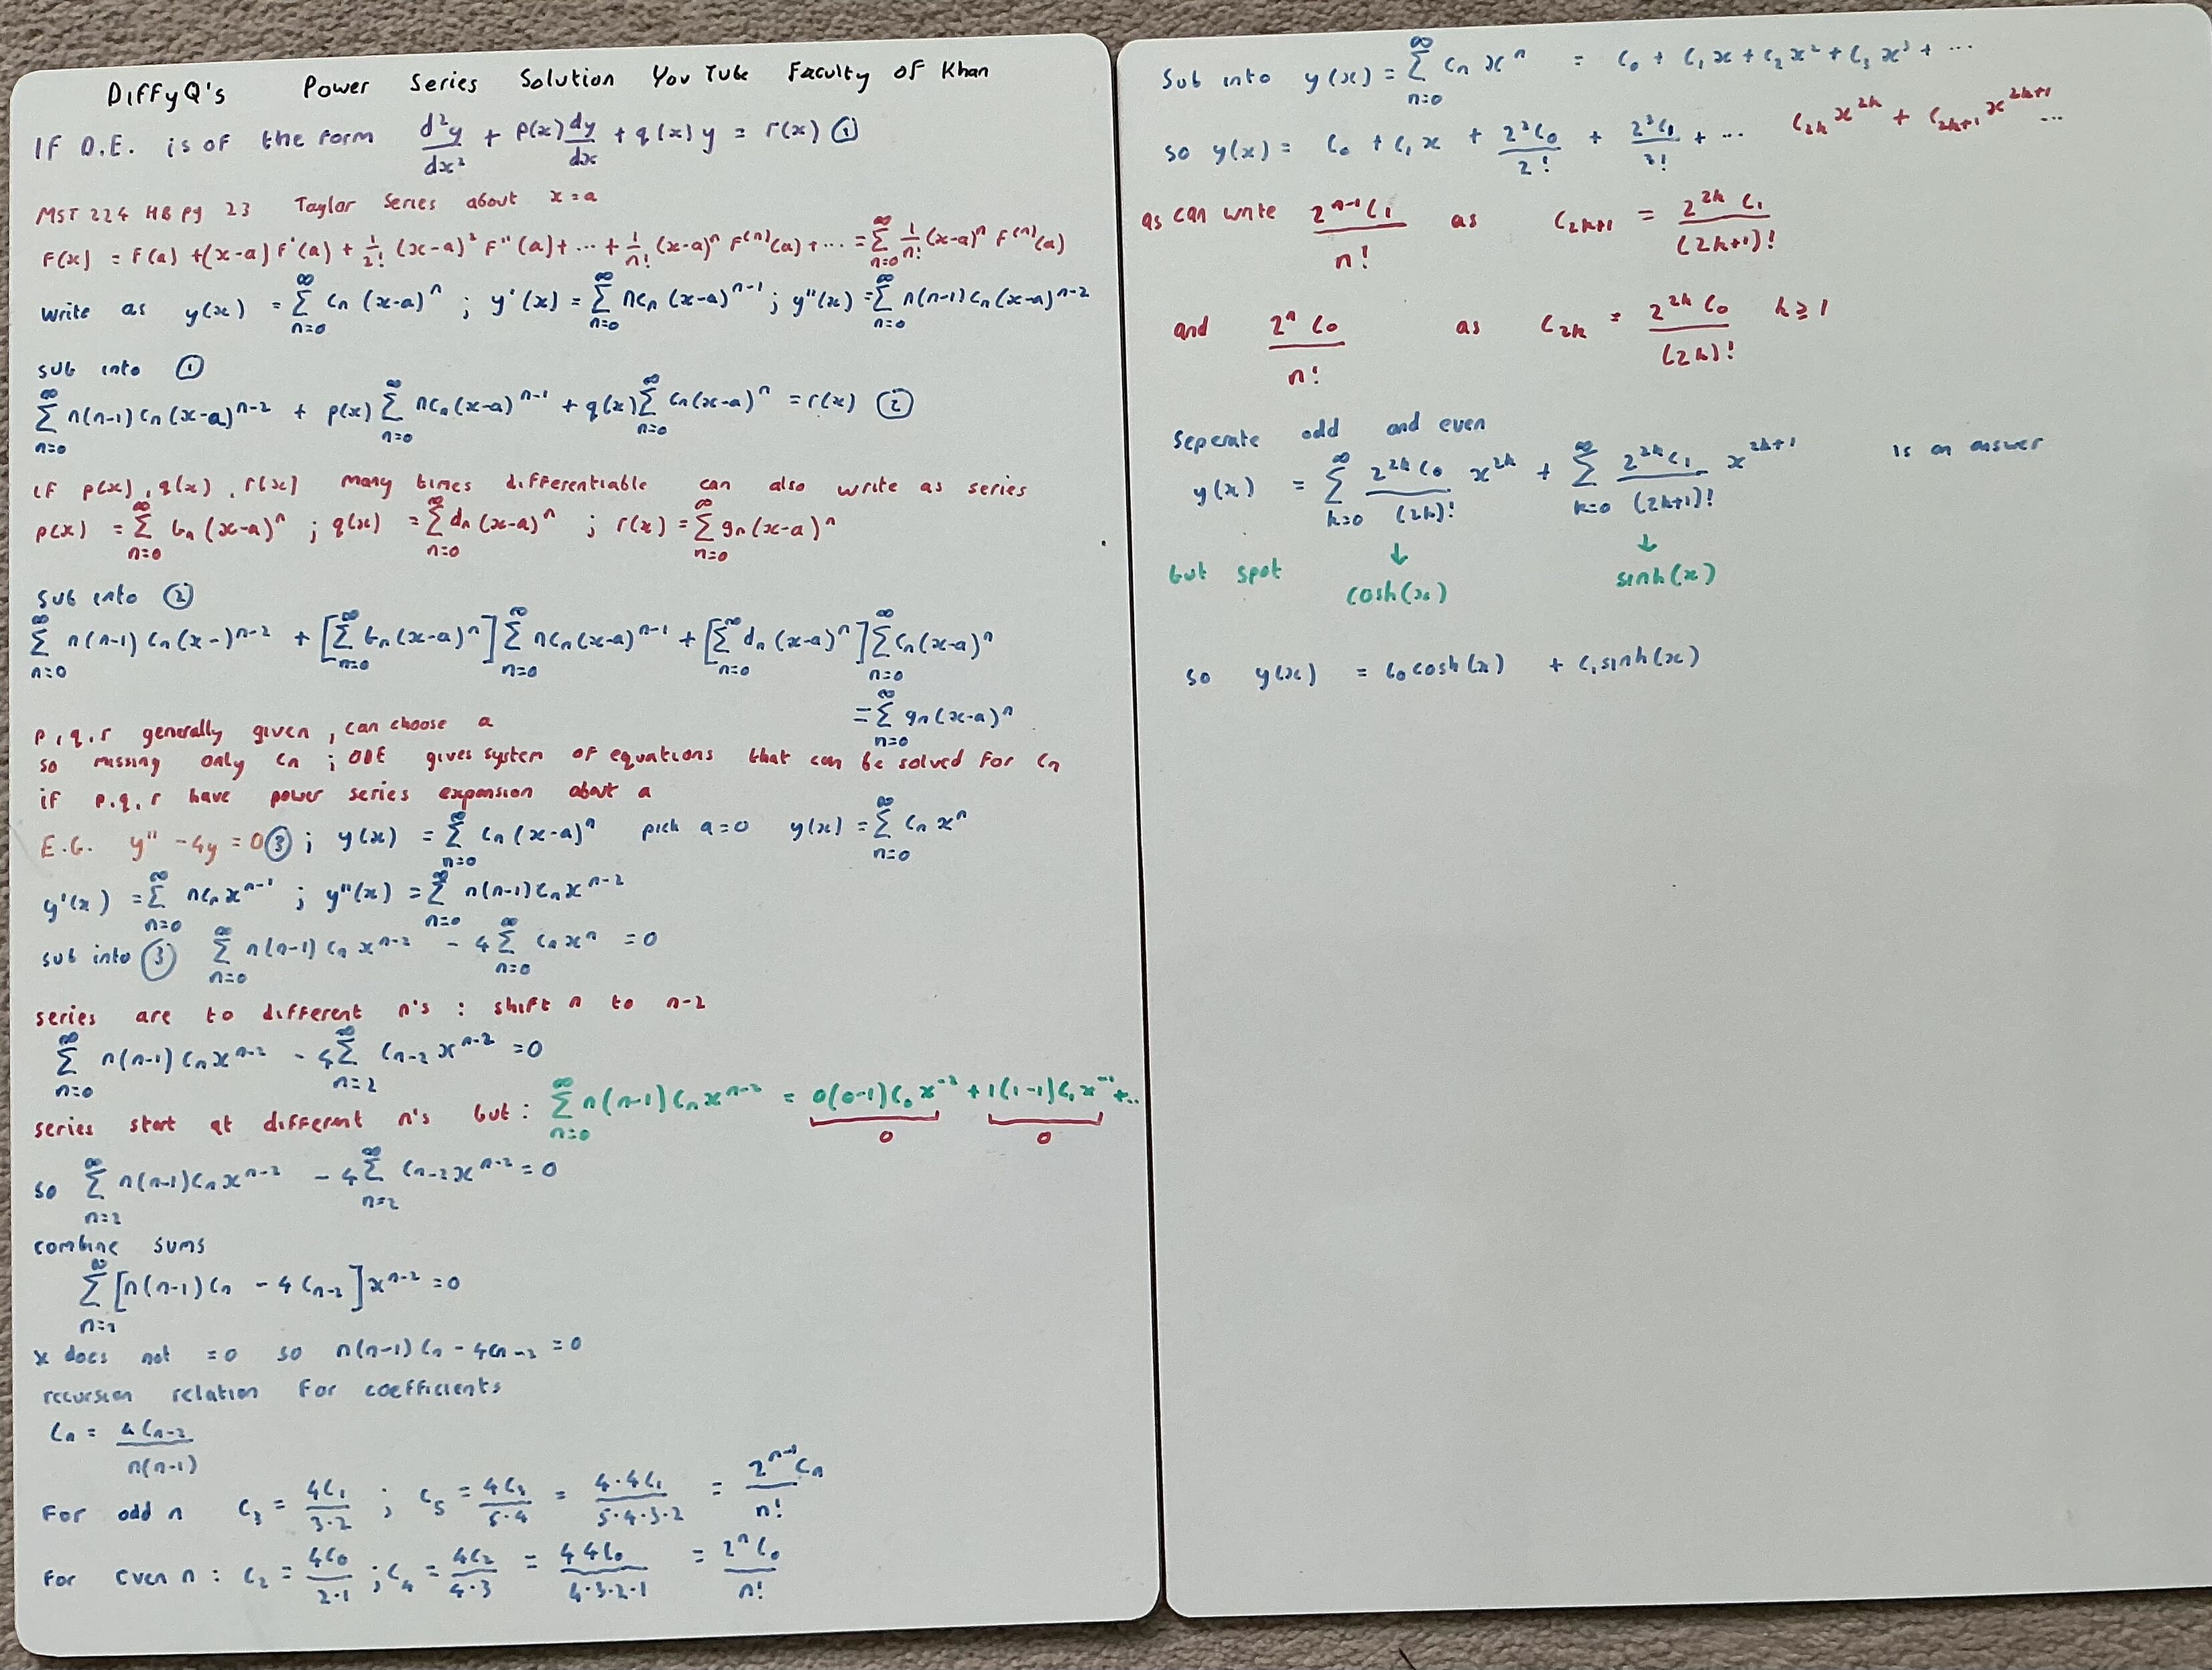 DIFFyQ's Power Series Solution YouTube Faculty of Khan
IF D.E. is of the form d²y/dx² + p(x) dy/dx + q(x) y = r(x) ①
MST 224 HB pg 23 Taylor Series about x = a
F(x) = F(a) + (x-a) F'(a) + 1/2! (x-a)² F''(a) + ... + 1/n! (x-a)ⁿ F⁽ⁿ⁾(a) + ... = ∑_{n=0}^{∞} 1/n! (x-a)ⁿ F⁽ⁿ⁾(a)
write as y(x) = ∑_{n=0}^{∞} c_n (x-a)^n ; y'(x) = ∑_{n=0}^{∞} nc_n (x-a)^{n-1} ; y''(x) = ∑_{n=0}^{∞} n(n-1) c_n (x-a)^{n-2}
sub into ①
∑_{n=0}^{∞} n(n-1) c_n (x-a)^{n-2} + p(x) ∑_{n=0}^{∞} nc_n (x-a)^{n-1} + q(x) ∑_{n=0}^{∞} c_n (x-a)^n = r(x) ②
if p(x), q(x), r(x) many times differentiable can also write as series
p(x) = ∑_{n=0}^{∞} b_n (x-a)^n ; q(x) = ∑_{n=0}^{∞} d_n (x-a)^n ; r(x) = ∑_{n=0}^{∞} g_n (x-a)^n
sub into ②
∑_{n=0}^{∞} n(n-1) c_n (x-)^{n-2} + [∑_{n=0}^{∞} b_n (x-a)^n] ∑_{n=0}^{∞} nc_n (x-a)^{n-1} + [∑_{n=0}^{∞} d_n (x-a)^n] ∑_{n=0}^{∞} c_n (x-a)^n
= ∑_{n=0}^{∞} g_n (x-a)^n
p, q, r generally given, can choose a
so missing only c_n ; ODE gives system of equations that can be solved for c_n
if p, q, r have power series expansion about a
E.G. y'' - 4y = 0 ③ ; y(x) = ∑_{n=0}^{∞} c_n (x-a)^n pick a=0 y(x) = ∑_{n=0}^{∞} c_n x^n
y'(x) = ∑_{n=0}^{∞} nc_n x^{n-1} ; y''(x) = ∑_{n=0}^{∞} n(n-1) c_n x^{n-2}
sub into ③ ∑_{n=0}^{∞} n(n-1) c_n x^{n-2} - 4 ∑_{n=0}^{∞} c_n x^n = 0
series are to different n's : shift n to n-2
∑_{n=0}^{∞} n(n-1) c_n x^{n-2} - 4 ∑_{n=2}^{∞} c_{n-2} x^{n-2} = 0
series start at different n's but : ∑_{n=0}^{∞} n(n-1) c_n x^{n-2} = 0(0-1) c_0 x^{-2} + 1(1-1) c_1 x^{-1} + ..
0 0
so ∑_{n=2}^{∞} n(n-1) c_n x^{n-2} - 4 ∑_{n=2}^{∞} c_{n-2} x^{n-2} = 0
combine sums
∑_{n=2}^{∞} [n(n-1) c_n - 4 c_{n-2}] x^{n-2} = 0
x does not = 0 so n(n-1) c_n - 4c_{n-2} = 0
recursion relation for coefficients
c_n = 4c_{n-2}/n(n-1)
For odd n c_3 = 4c_1/3·2 ; c_5 = 4c_3/5·4 = 4·4c_1/5·4·3·2 = 2^{n-1} c_n/n!
For even n : c_2 = 4c_0/2·1 ; c_4 = 4c_2/4·3 = 4 4c_0/4·3·2·1 = 2^n c_0/n!
Sub into y(x) = ∑_{n=0}^{∞} c_n x^n = c_0 + c_1 x + c_2 x² + c_3 x³ + ...
so y(x) = c_0 + c_1 x + 2²c_0/2! + 2²c_1/3! + ... c_{2k} x^{2k} + c_{2k+1} x^{2k+1} ...
as can write 2^{n-1} c_1/n! as c_{2k+1} = 2^{2k} c_1/(2k+1)!
and 2^n c_0/n! as c_{2k} = 2^{2k} c_0/(2k)! k ≥ 1
Seperate odd and even
y(x) = ∑_{k=0}^{∞} 2^{2k} c_0/(2k)! x^{2k} + ∑_{k=0}^{∞} 2^{2k} c_1/(2k+1)! x^{2k+1} is an answer
↓ ↓
but spot cosh(x) sinh(x)
so y(x) = c_0 cosh(x) + c_1 sinh(x)